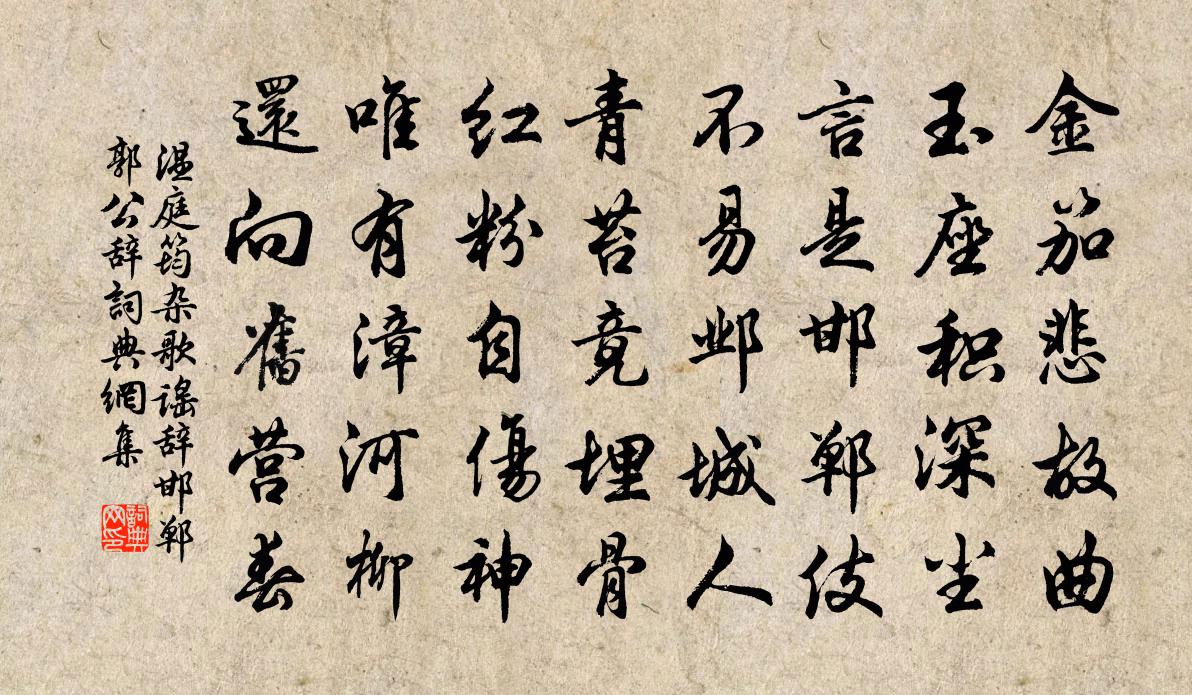 金笳悲故曲
玉座积深尘
言是邯郸伎
不易邺城人
青苔竟埋骨
红粉自傷神
唯有漳河柳
還向舊营春
温庭筠杂歌谣辞邯郸
郭公辞詞典網集
詞典
网印